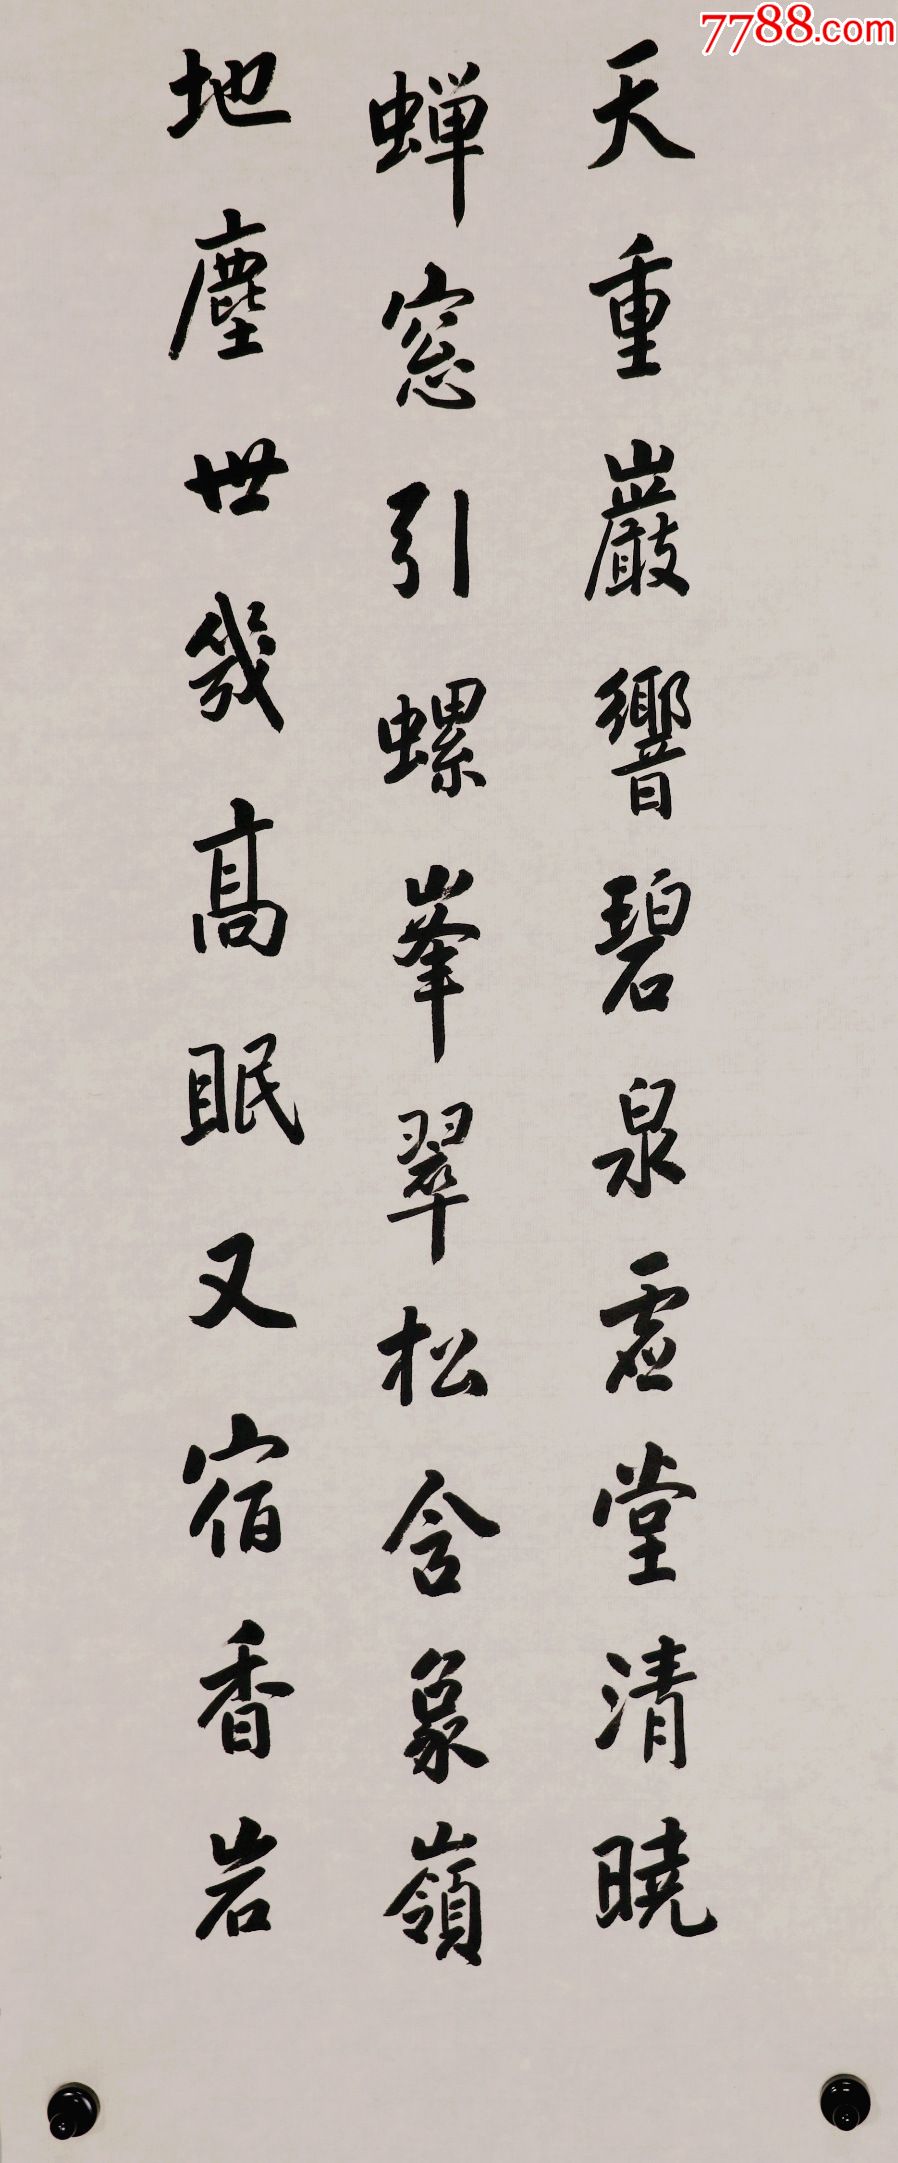 7788.com
天重巖響碧泉虛堂清曉
蝉窓引螺峯翠松含象嶺
地塵世幾高眠又宿香岩